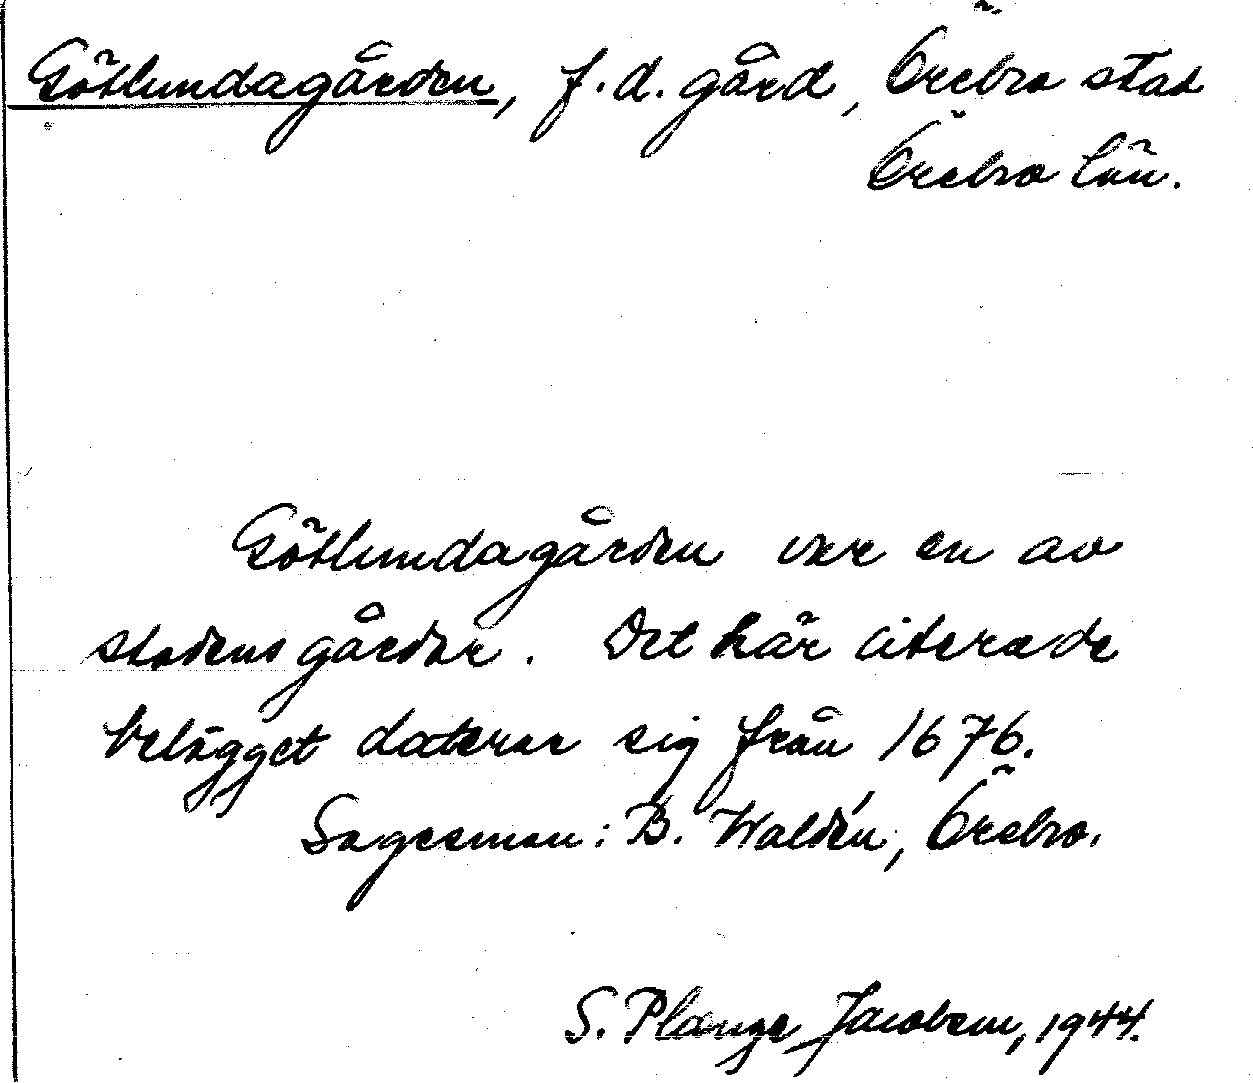 Götlundagården, f.d. gård, Örebro stad
Örebro län.
Götlundagården var en av
stadens gårdar. Det här citerade
belägget daterar sig från 1676.
Sagesman: B. Waldén, Örebro.
S. Plange Jacobson, 1944.